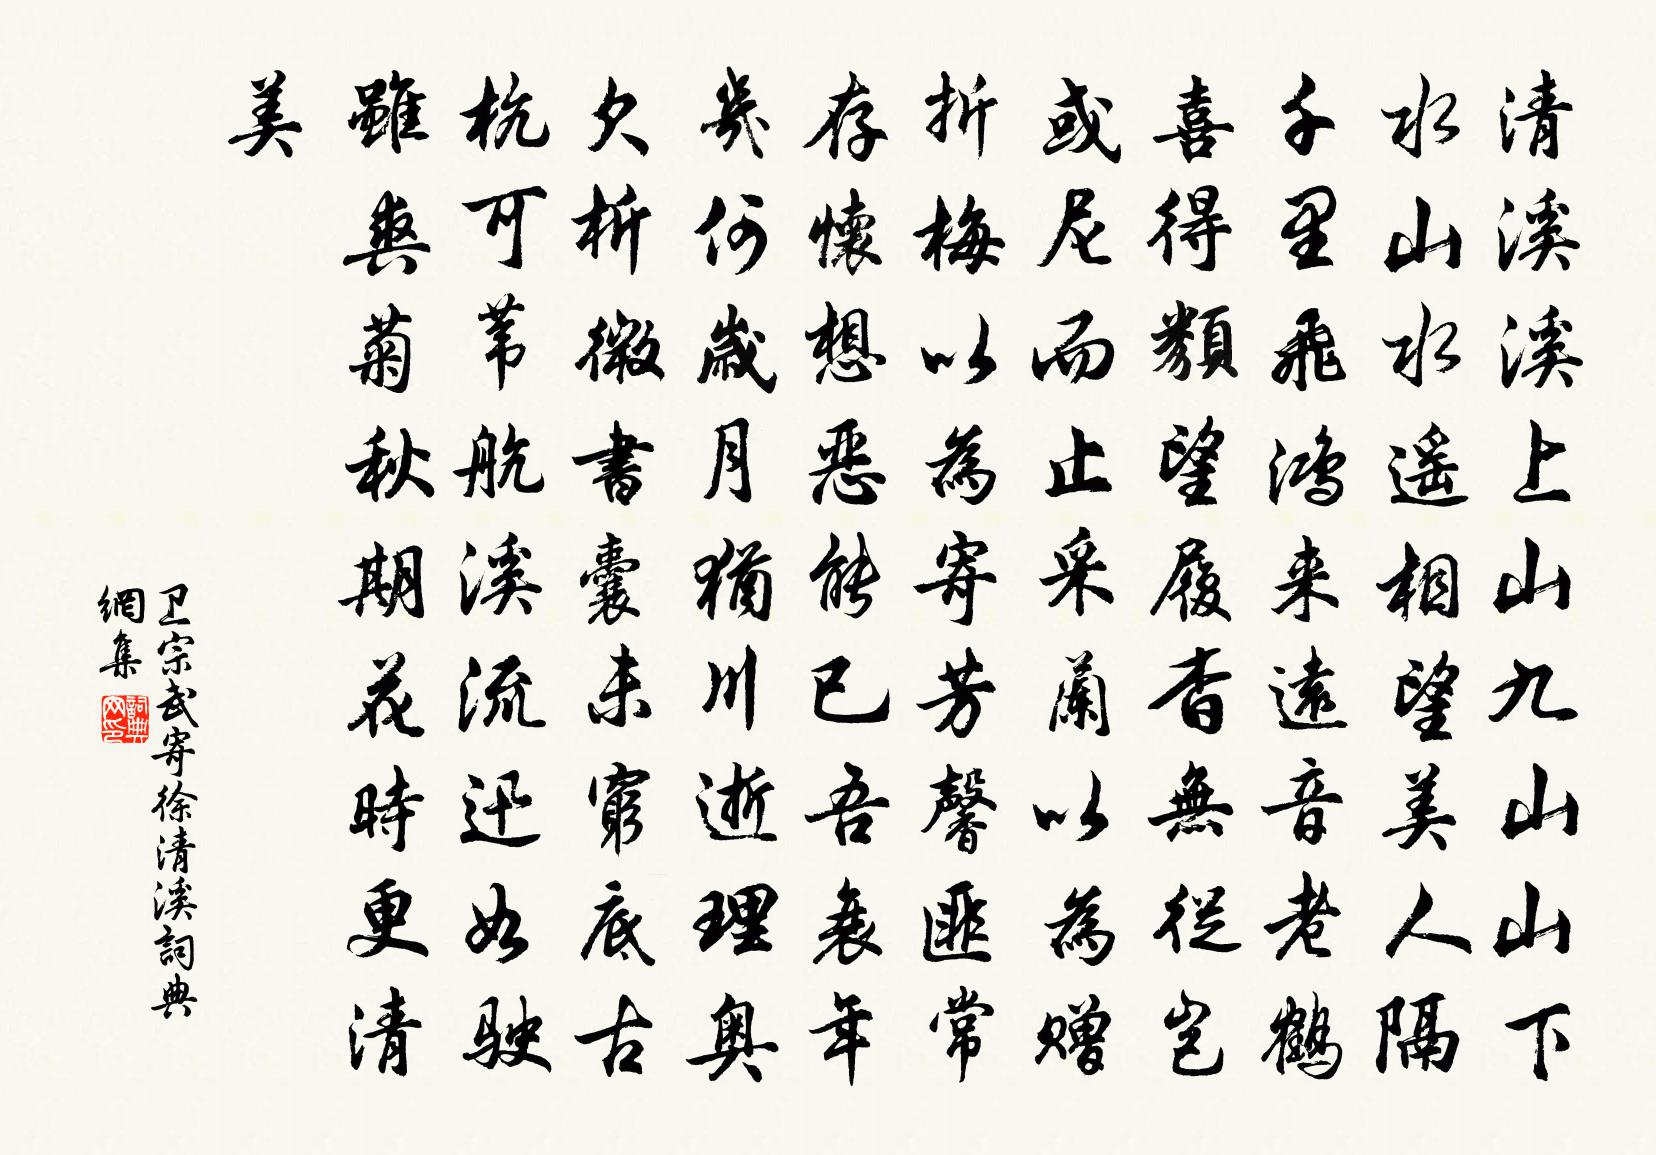 清溪溪上山九山山下
水山水遥相望美人隔
千里飛鴻来遠音老鶴
喜得類望履杳無從豈
或尼而止采蘭以為贈
折梅以為寄芳馨匪常
存懷想惡能已吾衰年
幾何歲月猶川逝理奥
欠析微書囊未窮底古
杭可苇航溪流迅如駛
雖爽菊秋期花時更清
美
卫宗武寄徐清溪詞典
網集
詞典
网印